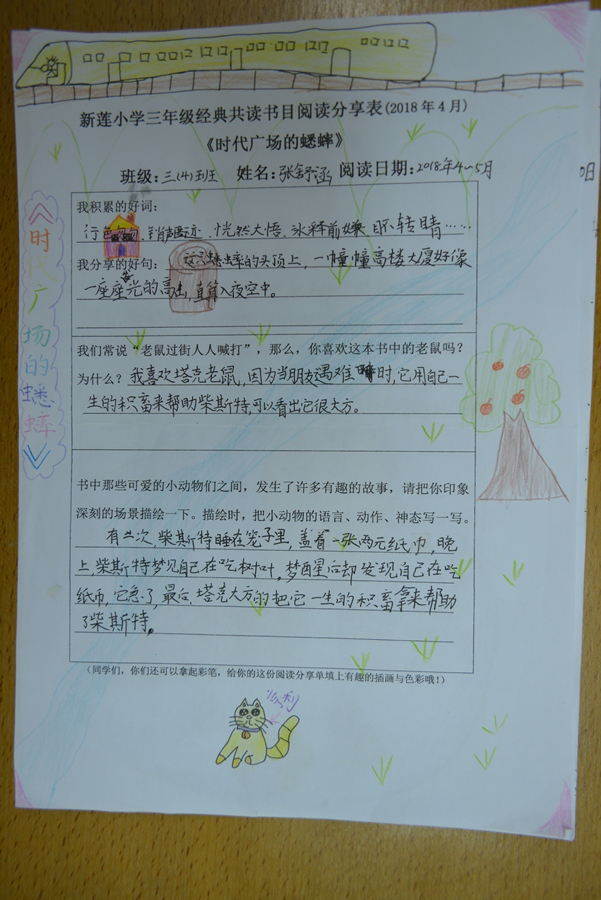 新莲小学三年级经典共读书目阅读分享表(2018年4月)
《时代广场的蟋蟀》
班级:三(4)班 姓名:张舒涵 阅读日期:2018年4~5月
0日
《时 广场的蟋蟀》
我积累的好词:
行色匆匆、销声匿迹、恍然大悟、冰释前嫌、目不转睛……
我分享的好句: 蟋蟀的头顶上,一幢幢高楼大厦好像
一座座发光的高山,直算入夜空中。
我们常说“老鼠过街人人喊打”,那么,你喜欢这本书中的老鼠吗?
为什么?我喜欢塔克老鼠,因为当朋友遇难 时,它用自己一
生的积畜来帮助柴斯特,可以看出它很大方。
书中那些可爱的小动物们之间,发生了许多有趣的故事,请把你印象
深刻的场景描绘一下。描绘时,把小动物的语言、动作、神态写一写。
有一次,柴斯特睡在笼子里,盖着一张两元纸巾,晚
上,柴斯特梦见自己在吃树叶,梦酉星后却发现自己在吃
纸币,它急了,最后,塔克大方的把它一生的积畜拿来帮助
了柴斯特。
(同学们,你们还可以拿起彩笔,给你的这份阅读分享单填上有趣的插画与色彩哦!)